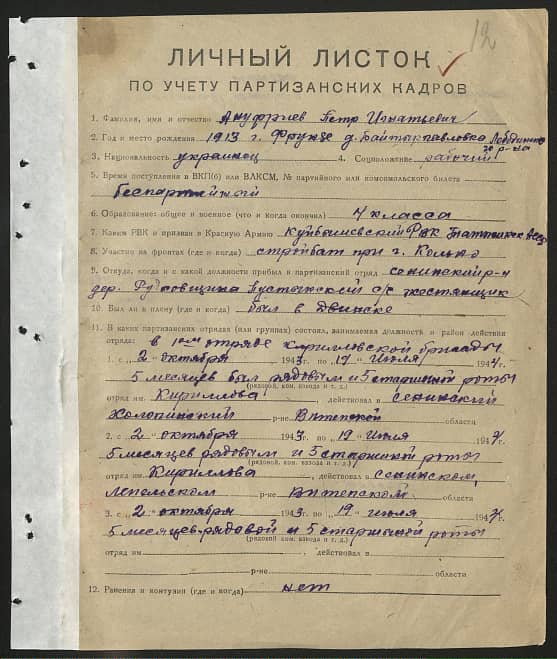 12
ЛИЧНЫЙ ЛИСТОК
ПО УЧЕТУ ПАРТИЗАНСКИХ КАДРОВ
1. Фамилия, имя и отчество Ануфриев Петр Игнатьевич
2. Год и место рождения 1913 г. Фрунзе д. Байтык Павловка
р-на
3. Национальность украинец 4. Соцположение рабочий
5. Время поступления в ВКП(б) или ВЛКСМ, № партийного или комсомольского билета
беспартийный
6. Образование: общее и военное (что и когда окончил) 4 класса
7. Каким РВК и призван в Красную Армию РВК
8. Участие на фронтах (где и когда) стройбат при г.
9. Откуда, когда и с какой должности прибыл в партизанский отряд сенинский р-н
дер. с/с жестянщик
10. Был ли в плену (где и когда) был в Двинске
11. В каких партизанских отрядах (или группах) состоял, занимаемая должность и район действия
отряда: в отряде Кирилловской бригады
1. с 2 октября 1943 по 19 июля 1944 г.
5 месяцев был рядовым и 5 старшиной роты
(рядовой, ком. взвода и т. д.)
отряд им. Кириллова, действовал в сенинский
Холопинский р-не Витепской области
2. с 2 октября 1943 по 19 июля 1944 г.
5 месяцев рядовым и 5 старшиной роты
(рядовой, ком. взвода и т. д.)
отряд им. Кириллова действовал в сенинском,
Лепельском р-не Витепском области
3. с 2 октября 1943 по 19 июля 1944 г.
5 месяцев рядовой и 5 старшиной роты
(рядовой, ком. взвода и т. д.)
отряд им. , действовал в
р-не области
12. Ранения и контузии (где и когда) нет